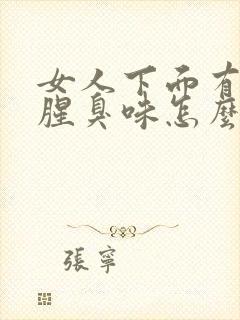 女人下面有
腥臭味怎麼
張寧